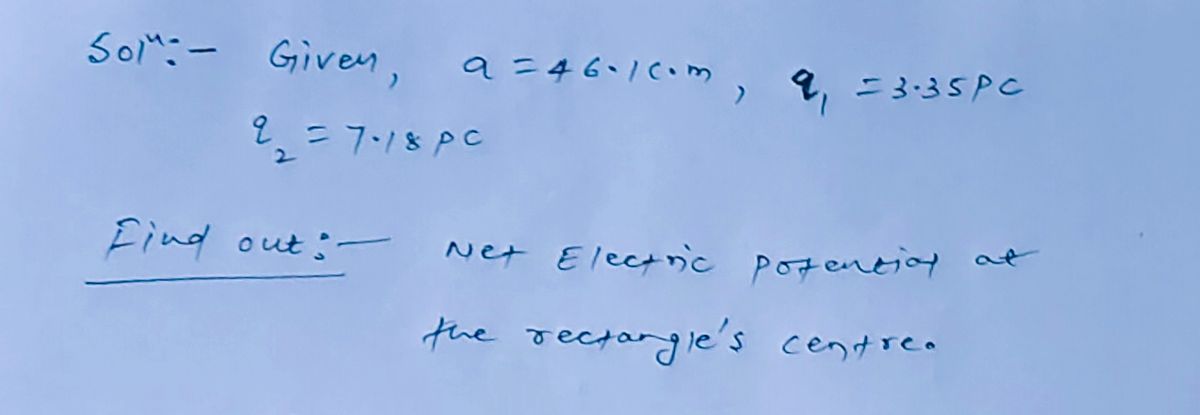 Solⁿ:- Given, a = 46.1 c.m, q₁ = 3.35 PC
q₂ = 7.18 PC
Find out:- Net Electric Potential at
the rectangle's centre.